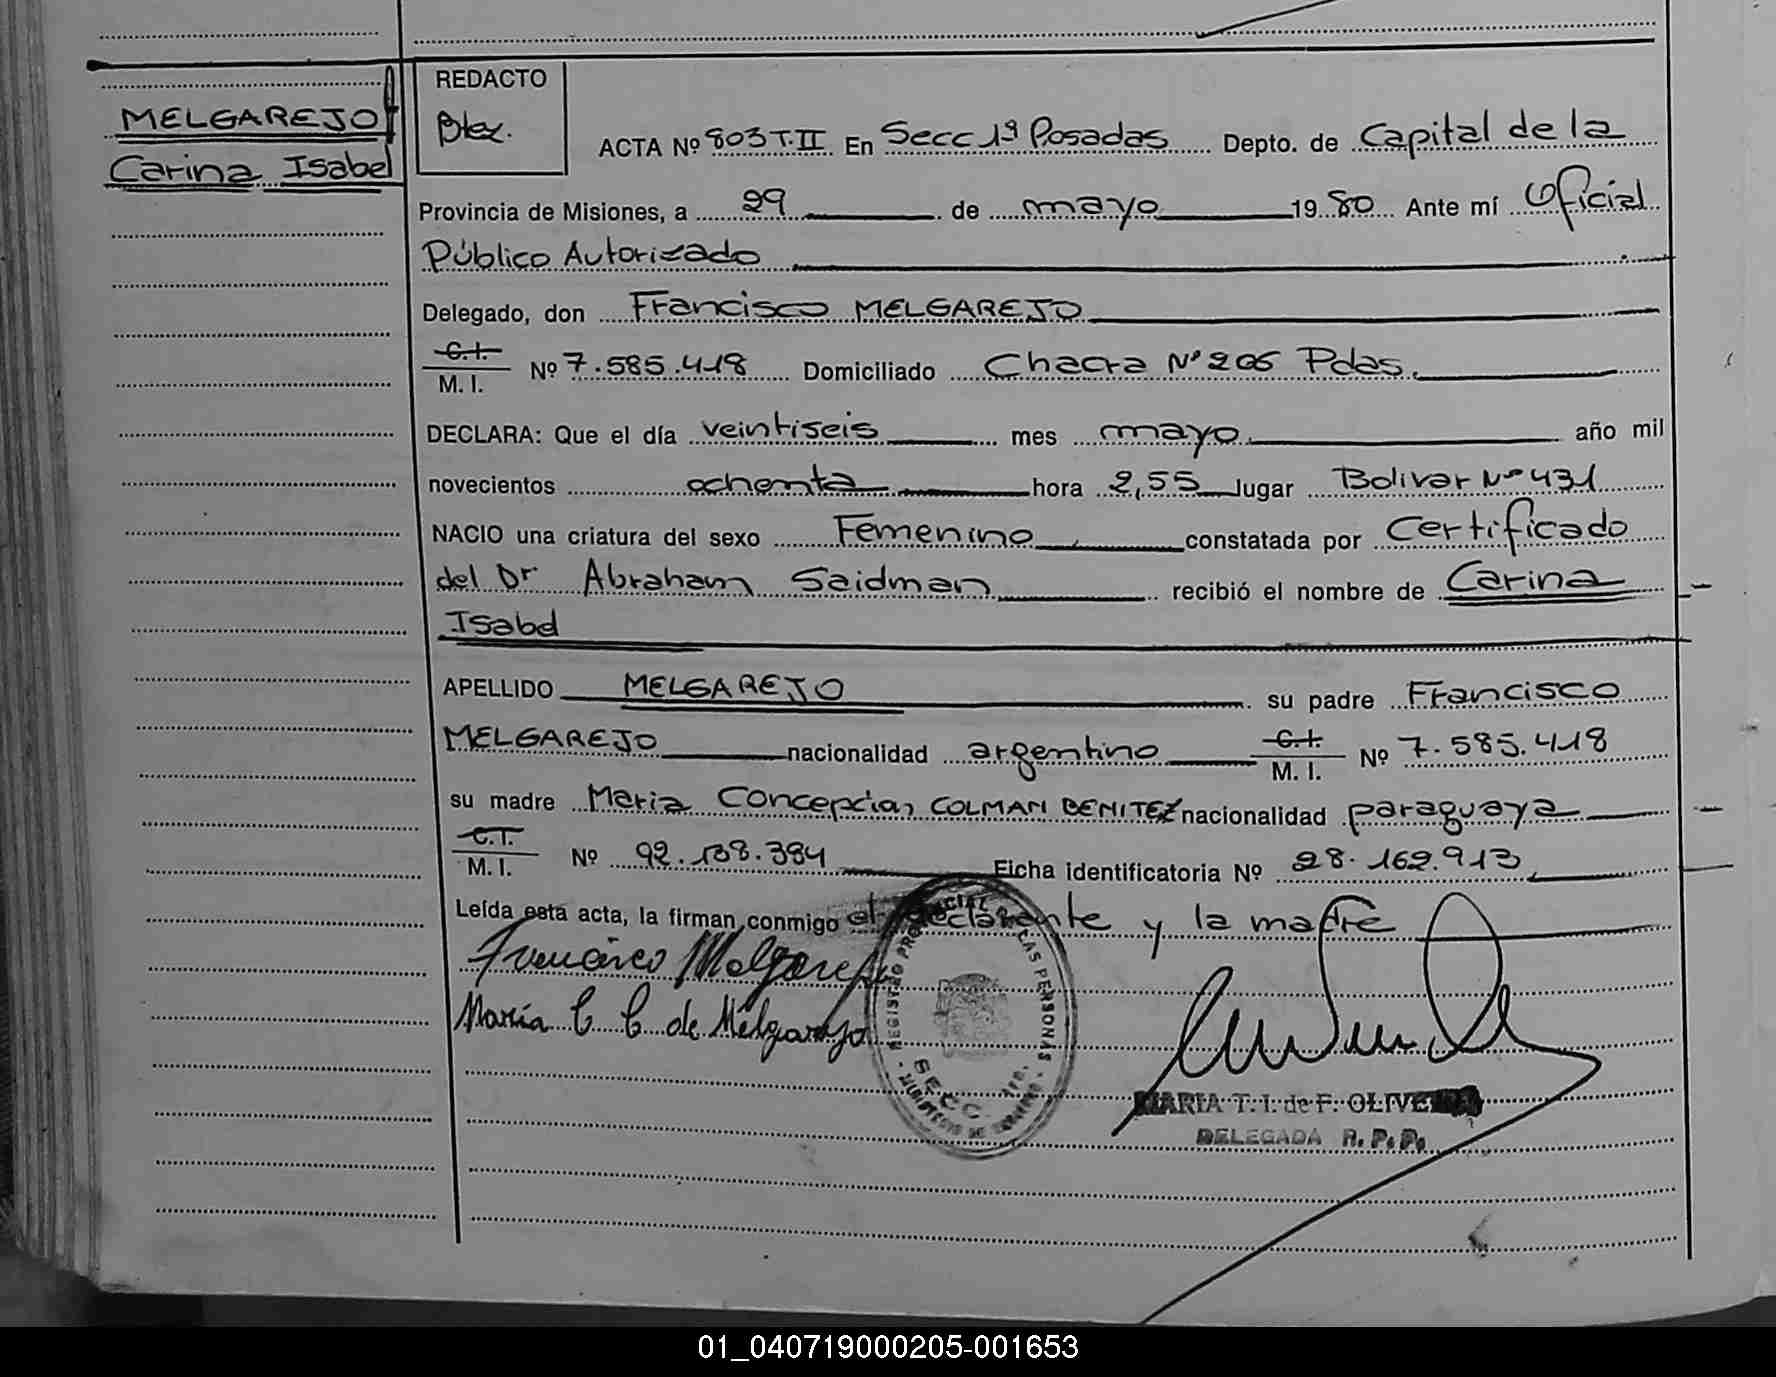 MELGAREJO
Carina Isabel
REDACTO
ACTA Nº 803 T.II En Secc 1ª Posadas Depto. de Capital de la
Provincia de Misiones, a 29 de mayo 1980 Ante mí Oficial
Público Autorizado
Delegado, don Francisco MELGAREJO
C.I.
M. I. Nº 7.585.418 Domiciliado Chacra Nº 206 Pdas.
DECLARA: Que el día veintiseis mes mayo año mil
novecientos ochenta hora 2,55 lugar Bolivar Nº 431
NACIO una criatura del sexo Femenino constatada por Certificado
del Dr Abraham Saidman recibió el nombre de Carina
Isabel
APELLIDO MELGAREJO su padre Francisco
MELGAREJO nacionalidad argentino C.I.
M. I. Nº 7.585.418
su madre Maria Concepcion COLMAN BENITEZ nacionalidad paraguaya
C.I.
M. I. Nº Ficha identificatoria Nº 28.162.913
Leída esta acta, la firman conmigo el declarante y la madre
Francisco Melgarejo
María C C de Melgarejo
REGISTRO PROVINCIAL DE LAS PERSONAS
SECC.
MARIA T. I. de F. OLIVEIRA
DELEGADA R. P. P.
01_040719000205-001653